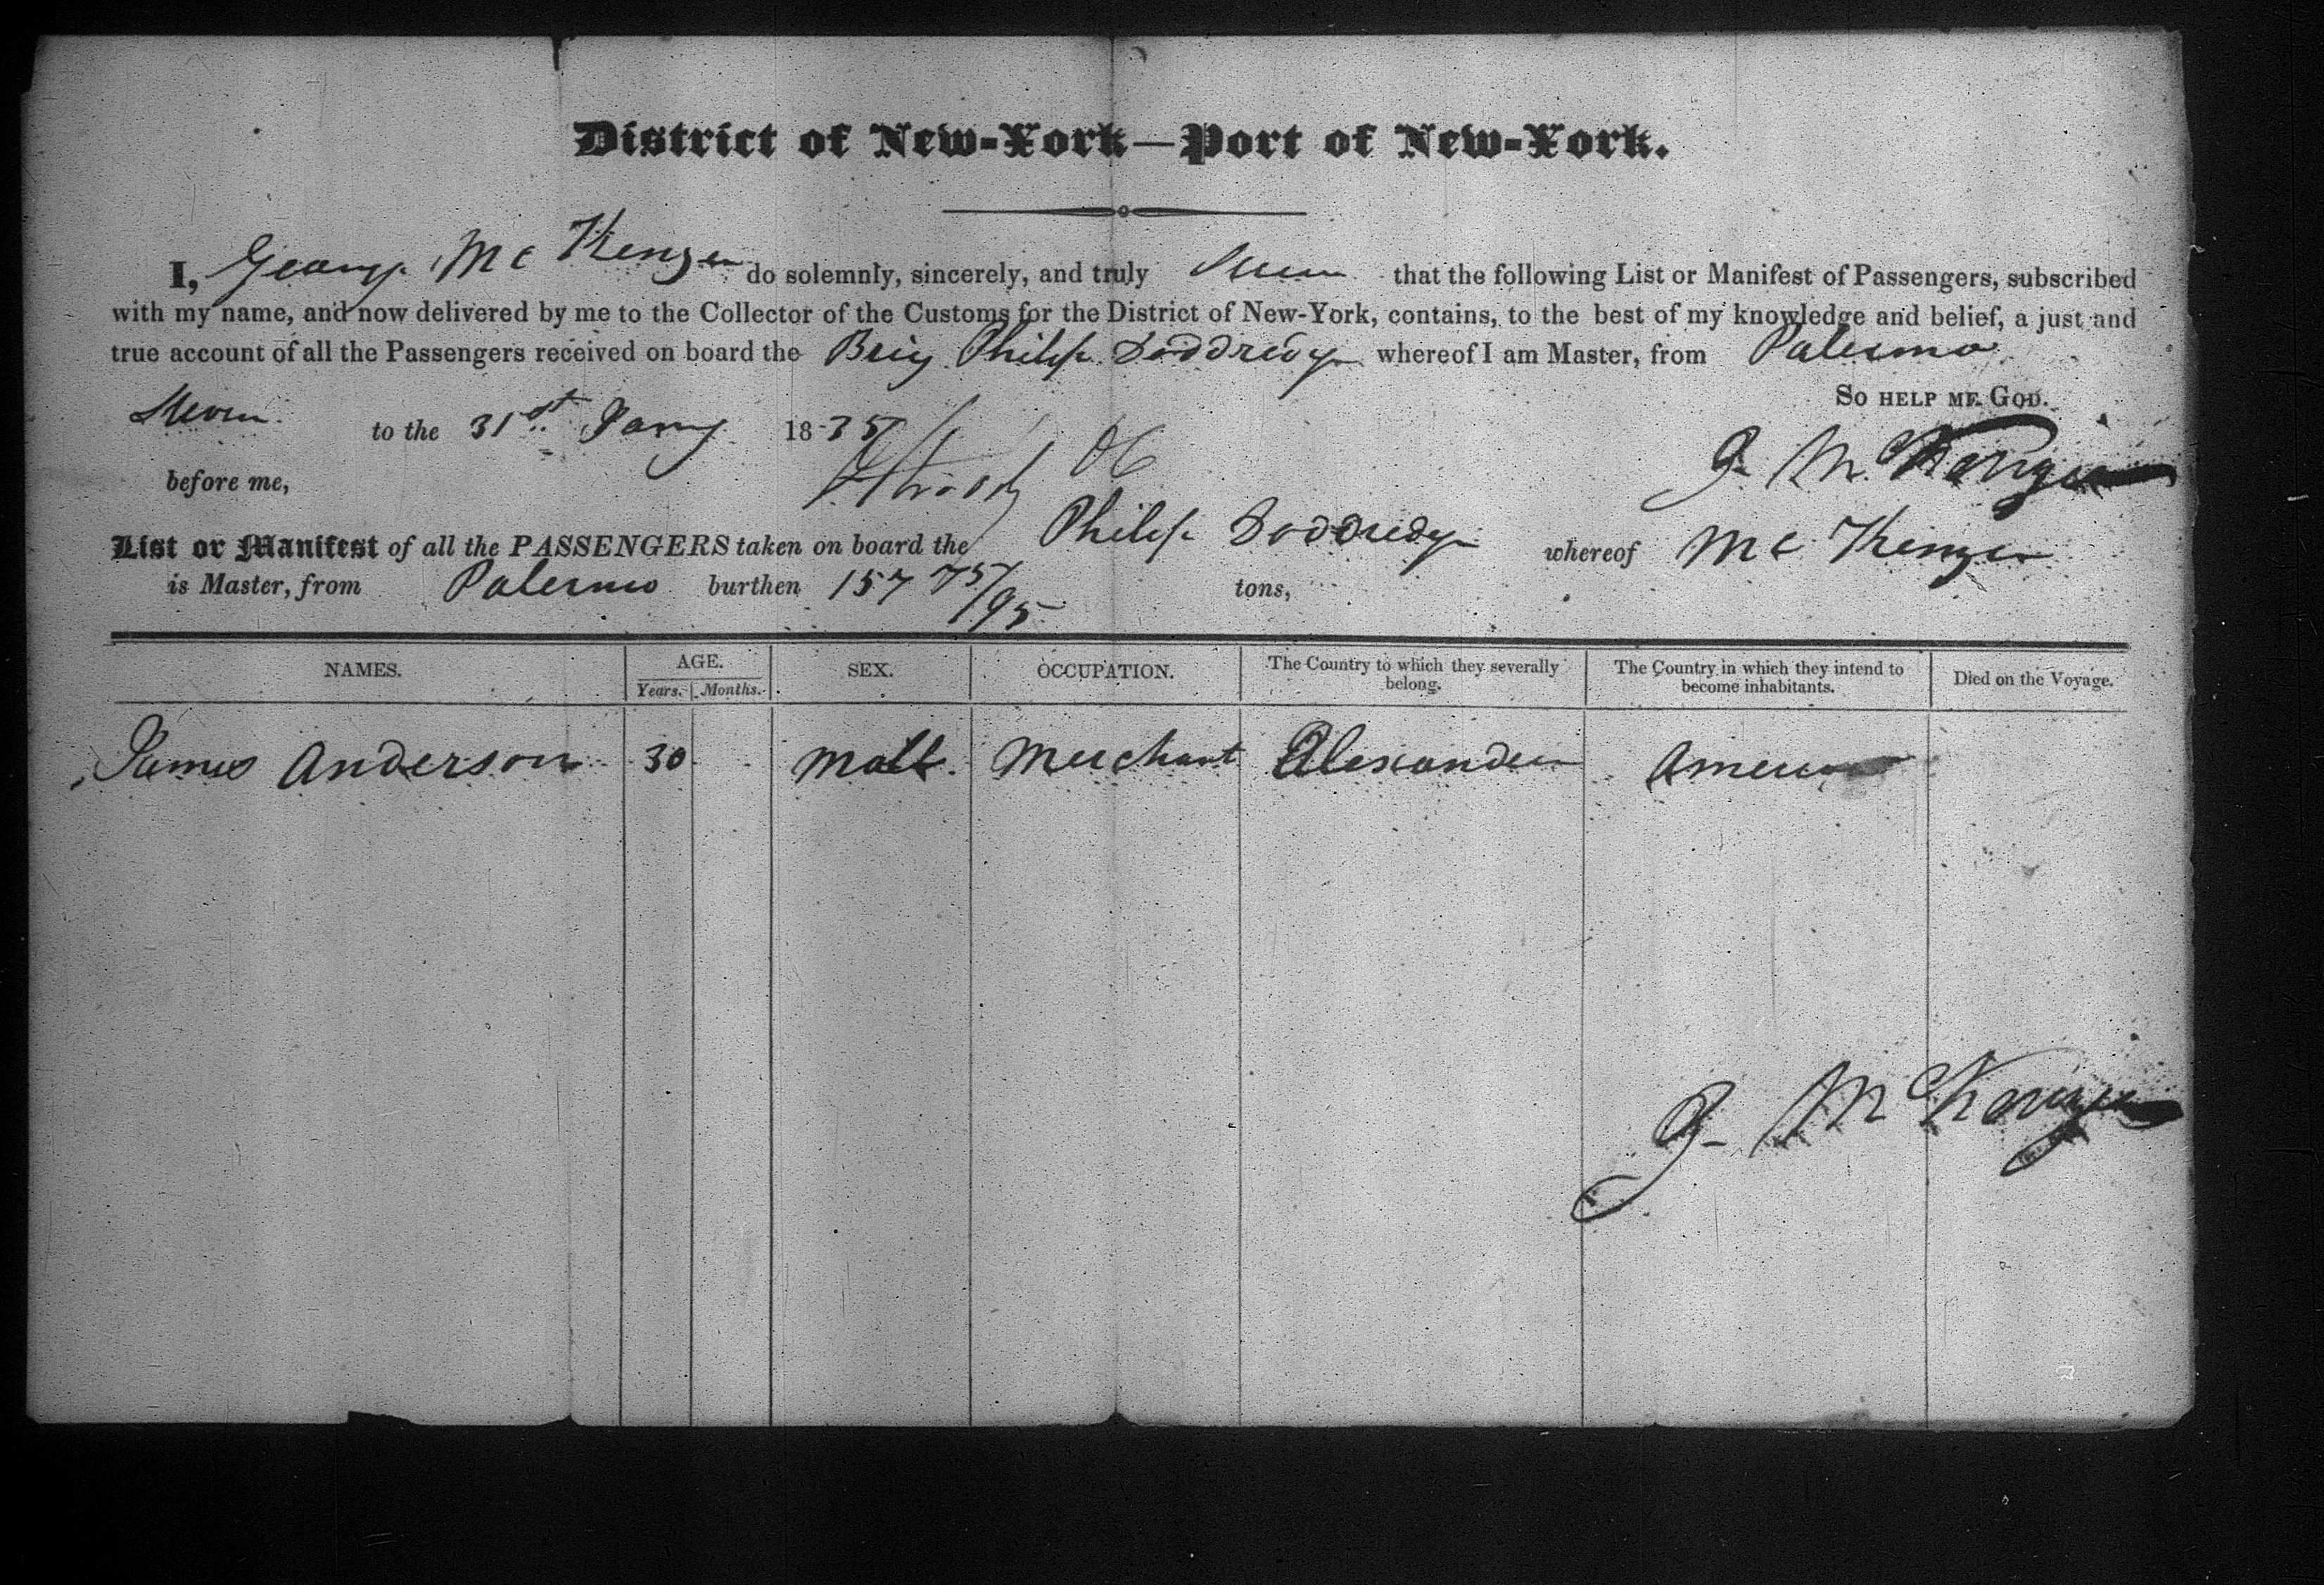 District of New-York—Port of New-York.
I, George Mc Kenzie do solemnly, sincerely, and truly Swear that the following List or Manifest of Passengers, subscribed
with my name, and now delivered by me to the Collector of the Customs for the District of New-York, contains, to the best of my knowledge and belief, a just and
true account of all the Passengers received on board the Brig Philip Doddredge whereof I am Master, from Palermo
So help me God.
Sworn to the 31st Jany 1835
G. McKenzie
before me,
List or Manifest of all the PASSENGERS taken on board the Philip Doddredge whereof Mc Kenzie
is Master, from Palermo burthen 157 75/95 tons,
NAMES. AGE. SEX. OCCUPATION. The Country to which they severally belong. The Country in which they intend to become inhabitants. Died on the Voyage.
Years. Months.
James Anderson 30 Male Merchant America
G McKenzie